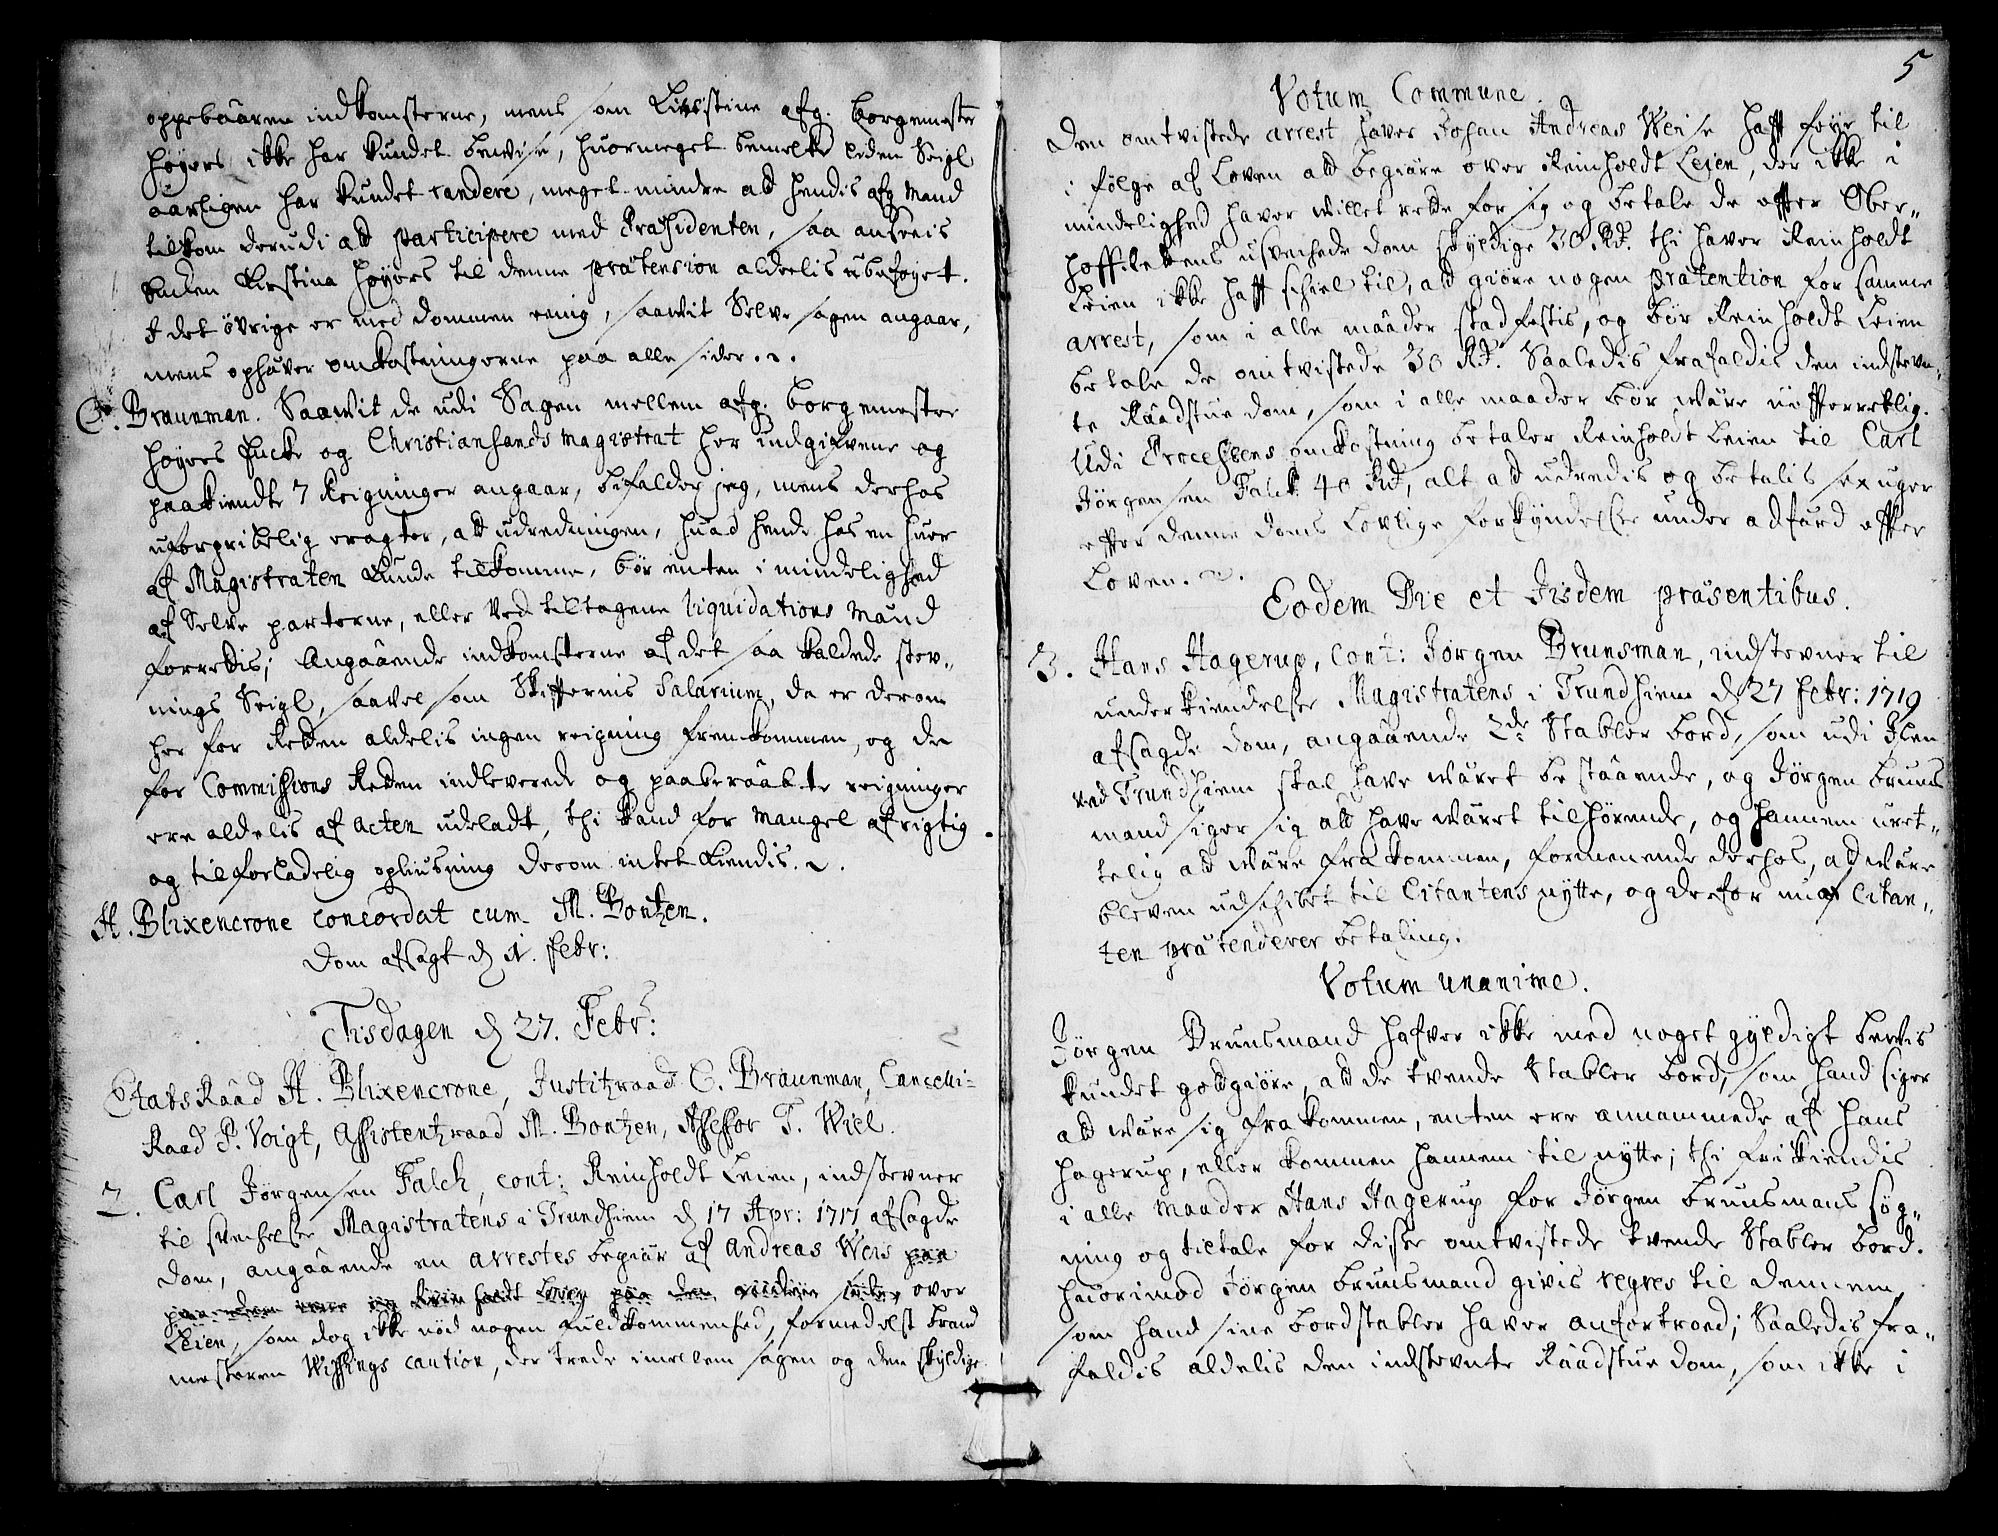 oppebaaren indkomsterne, mens som Kirstine afg. Borgemester
Høyers ikke har kundet bevise, huormeget bemelte leden Seigl
aarligen har kundet rendere, meget mindre at hendis afg Mand
tilkom derudi at participere med Præsidenten, saa ansees
Enken Kirstina Høyers til denne prætension aldelis ubeføyet.
I det øvrige er med dommen eenig, saawit Selve sagen angaar,
mens ophæver omkostningerne paa alle sider.
C. Braunman. Saawit de udi Sagen mellem afg. borgemester
Høyers Encke og Christiansands Magistrat her indgifvene og
paakiendte 7 Reigninger angaar, bifalder jeg, mens derhos
uforgribelig eragter, at udredningen, huad hende hos en huer
af Magistraten kunde tilkomme, bør enten i mindelighed
af Selve parterne, eller ved tiltagene liquidations Mænd
forrettis; Angaaende indkomsterne af det saa kaldede stev-
nings Seigl, saavel som Skifternis Salarium, da er derom
her for Retten aldelis ingen reigning fremkommen, og de
for Commissions Retten indleverede og paaberaabte reigninger
ere aldelis af acten udeladt, thi kand for Mangel af rigtig
og tilforladelig opliusning derom intet kiendis.
H. Blixencrone concordat cum M. Bontzen.
Dom afsagt d 1. Febr:
Tisdagen d 27. Febr:
EtatsRaad H. Blixencrone, Justitzraad C. Braunman, Cancelli-
Raad P. Voigt, Assistentzraad M. Bontzen, Assessor T. Wiel.
2. Carl Jørgensen Falch, cont: Reinholdt Leien, indstevner
til svechelse Magistratens i Trundhiem d 17 Apr: 1717 afsagde
dom, angaaende en arrestes begiær af Andreas Weis paa
over
Leien, som dog ikke nød nogen fuldkommenhed, formedelst brand
mesteren Wissings caution, der trede imellem sagen og den skyldige
5
Votum Commune.
Den omtvistede arrest haver Johan Andreas Weise haft føye til
i følge af Loven at begiære over Reinholdt Leien, der ikke i
mindelighed haver willet rette for sig og betale de efter Ober-
hoffRettens usvechede dom skyldige 30 Rd. thi haver Reinholdt
Leien ikke haft schiel til, at giøre nogen prætention for samme
arrest, som i alle maader stadfestis, og bør Reinholdt Leien
betale de omtvistede 30 Rd. Saaledis frafaldis den indstevn-
te Raadstue dom, som i alle maader bør være uefterrettlig.
Udi Processens omkostning betaler Reinholdt Leien til Carl
Jørgensen Falch 40 Rd, alt at udredis og betalis sex uger
efter denne doms lovlige forkyndelse under adfærd efter
Loven.
Eodem Die et Iisdem præsentibus.
3. Hans Hagerup, cont: Jørgen Brunsman, indstevner til
underkiendelse Magistratens i Trundhiem d 27 Febr: 1719
afsagde dom, angaaende 2de Stabler bord, som udi Ilen
ved Trundhiem skal have wæret bestaaende, og Jørgen Bruns
mand siger sig at have wæret tilhørende, og hannem uret-
telig at være frakommen, formenende derhos, at være
bleven udschibet til Citantens nytte, og derfor nu af Citan-
ten prætenderer betaling.
Votum unanime.
Jørgen Brunsmand hafver ikke med noget gyldigt bewis
kundet godgiøre, at de tvende Stabler bord, som hand siger
at være sig frakommen, enten ere annammede af Hans
Hagerup, eller kommen hannem til nytte; thi frikiendis
i alle maader Hans Hagerup for Jørgen Brunsmans søg-
ning og tiltale for disse omtvistede tvende Stabler bord.
huorimod Jørgen Brunsmand givis regres til dennem,
som hand sine bordstabler haver anfortroed; Saaledis fra-
faldis aldelis den indstevnte Raadstue dom, som ikke i